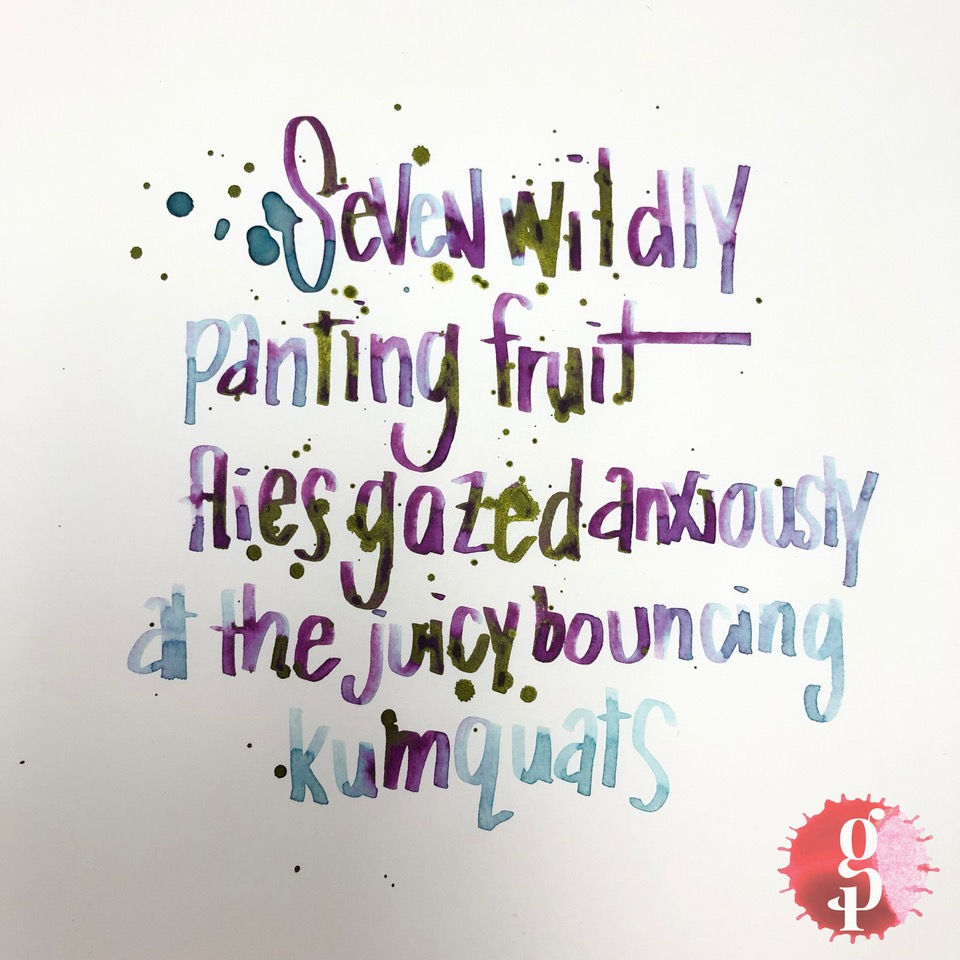 Seven wildly
panting fruit
flies gazed anxiously
at the juicy bouncing
kumquats
gp